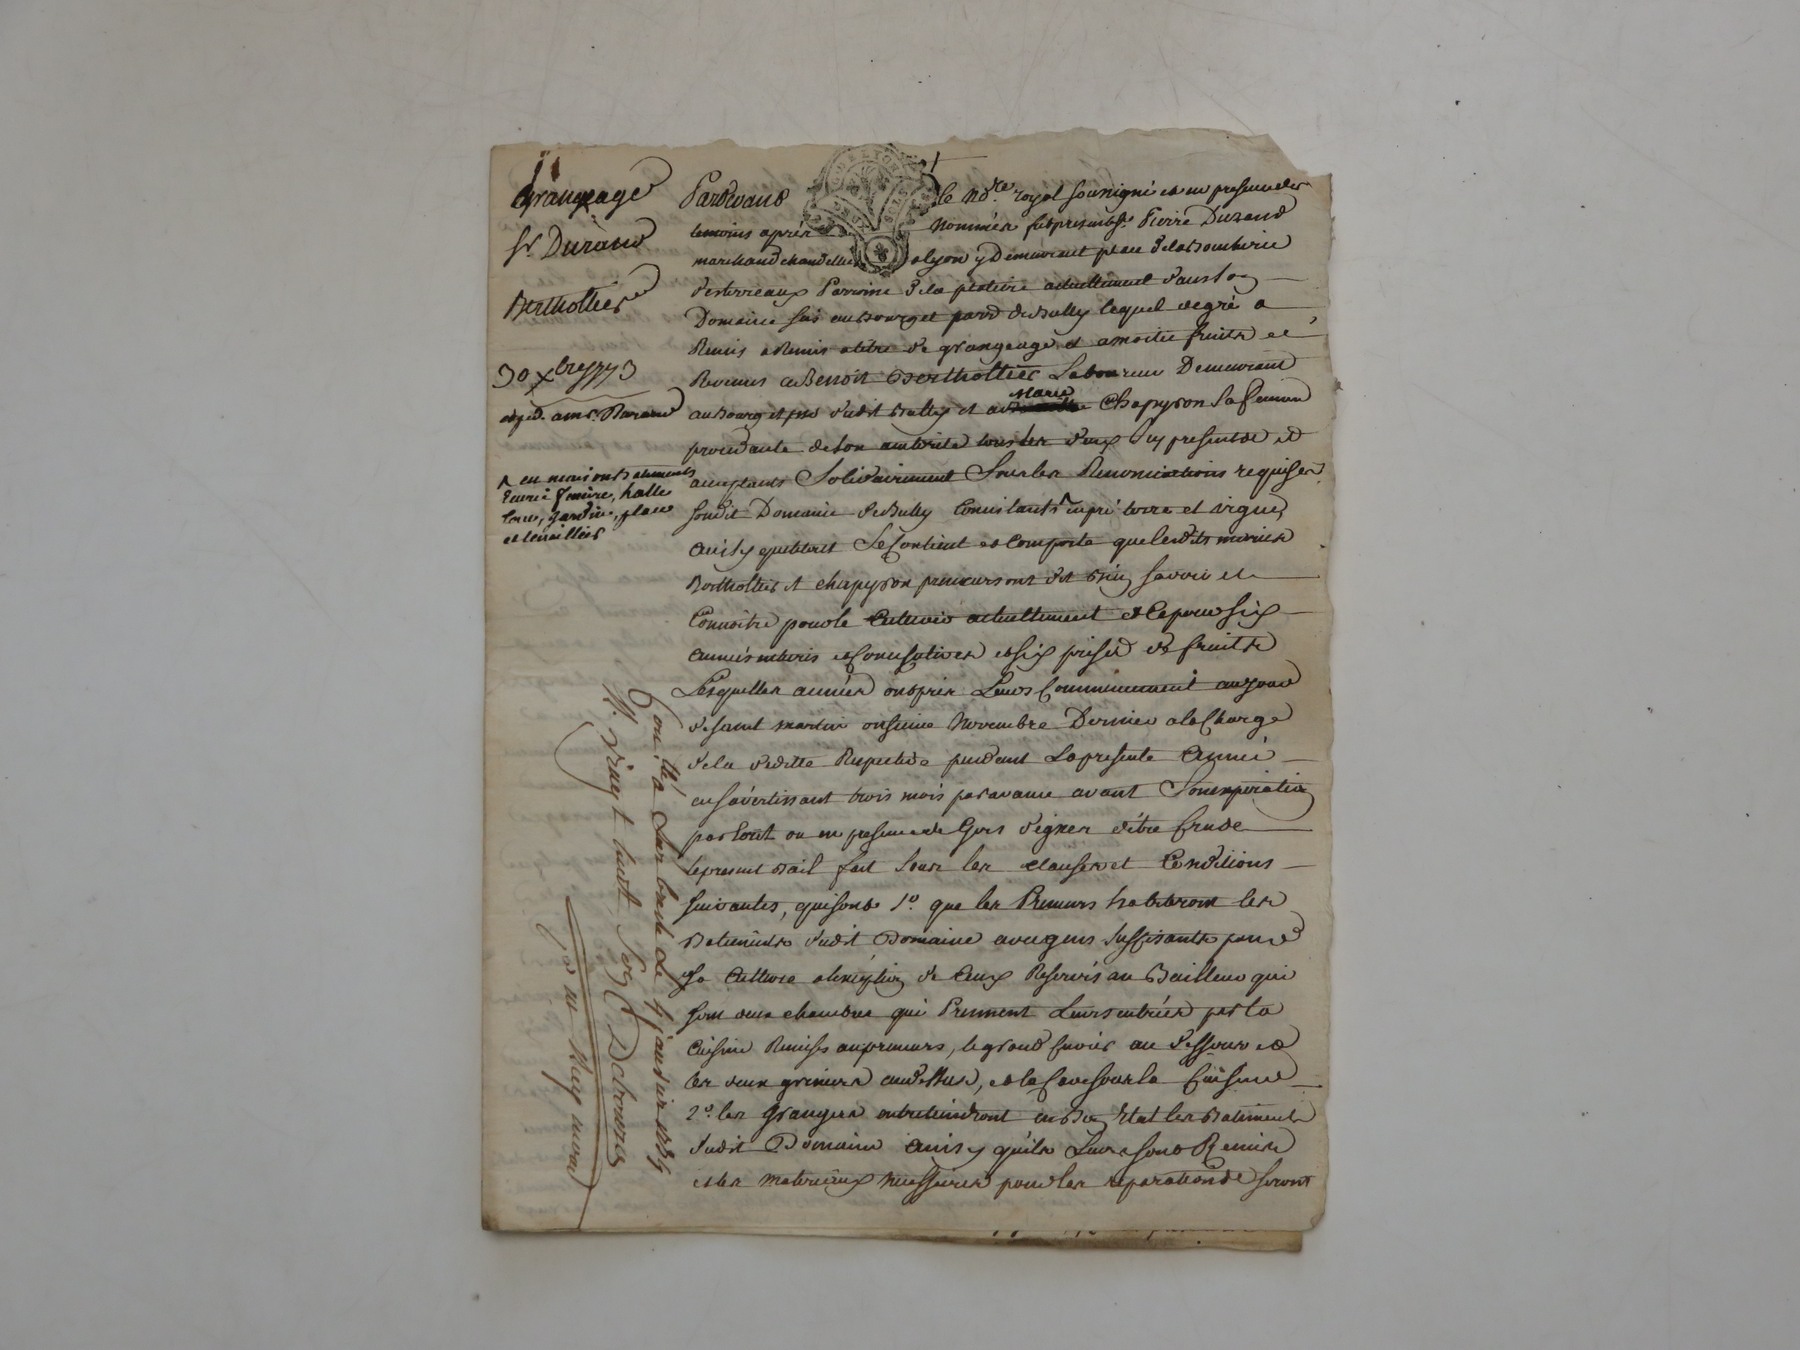 Grangeage
Sr Durand
Berthollier
30 xbre 1773
expéd. a mr. Durand
^ en maisons batiments
Ecurie feniere, halle
Cour, jardin, place
et tenailliers
Pardevant le nore. royal soussigné et en presence des
temoins après nommés fut present Sr. Pierre Durand
marchand chandellier a lyon y Demeurant place de la Boucherie
des terreaux Parroisse de la platiere actuellement dans son
Domaine sis au Bourg et parr. de Bully lequel de gré a
Remis et Remis a titre de grangeage et a moitié fruits et
Revenus a Benoit Berthollier Laboureur Demeurant
au Bourg et prse dudit Bully et a Marie Chapyron sa femme
procedante de son autorité tous les deux icy presents et
acceptants Solidairement Sous les Renonciations requises
sondit Domaine de Bully Consistant ^ en pré terre et vigne
ainsy que le tout se Contient et Comporte que lesdits mariés
Berthollier et chapyron preneurs ont dit bien savoir et
Connoitre pour le Cultiver actuellement et ce pour six
années entieres et Consecutives et six prises de fruits
Lesquelles années ont pris Leurs Commencement au jour
de saint martin onzieme Novembre Dernier a la Charge
de la deditte Respective pendant La presente année
en s'avertissant trois mois par avance avant Son expiration
par Ecrit ou en presence de Gens dignes d'être Crus
le present Bail fait sous les clauses et Conditions
suivantes, qui sont 1º. que les Preneurs habiteront les
Batiments dudit Domaine avec gens suffisants pour
sa Culture a l'exception de Ceux Reservés au Bailleur qui
sont deux chambres qui Prennent Leurs entrées par la
Cuisine Remises aux preneurs, le grand cuvier au dessous et
les deux greniers au dessus, et la Cave sous la Cuisine
2º. les Grangers entretiendront en Bon Etat les Batiments
dudit Domaine ainsy qu'ils Leurs sont Remis
et les materiaux necessaires pour les reparations seront
Con.llé Sur bail Le 4 janvier 1774
R. vingt huit sols